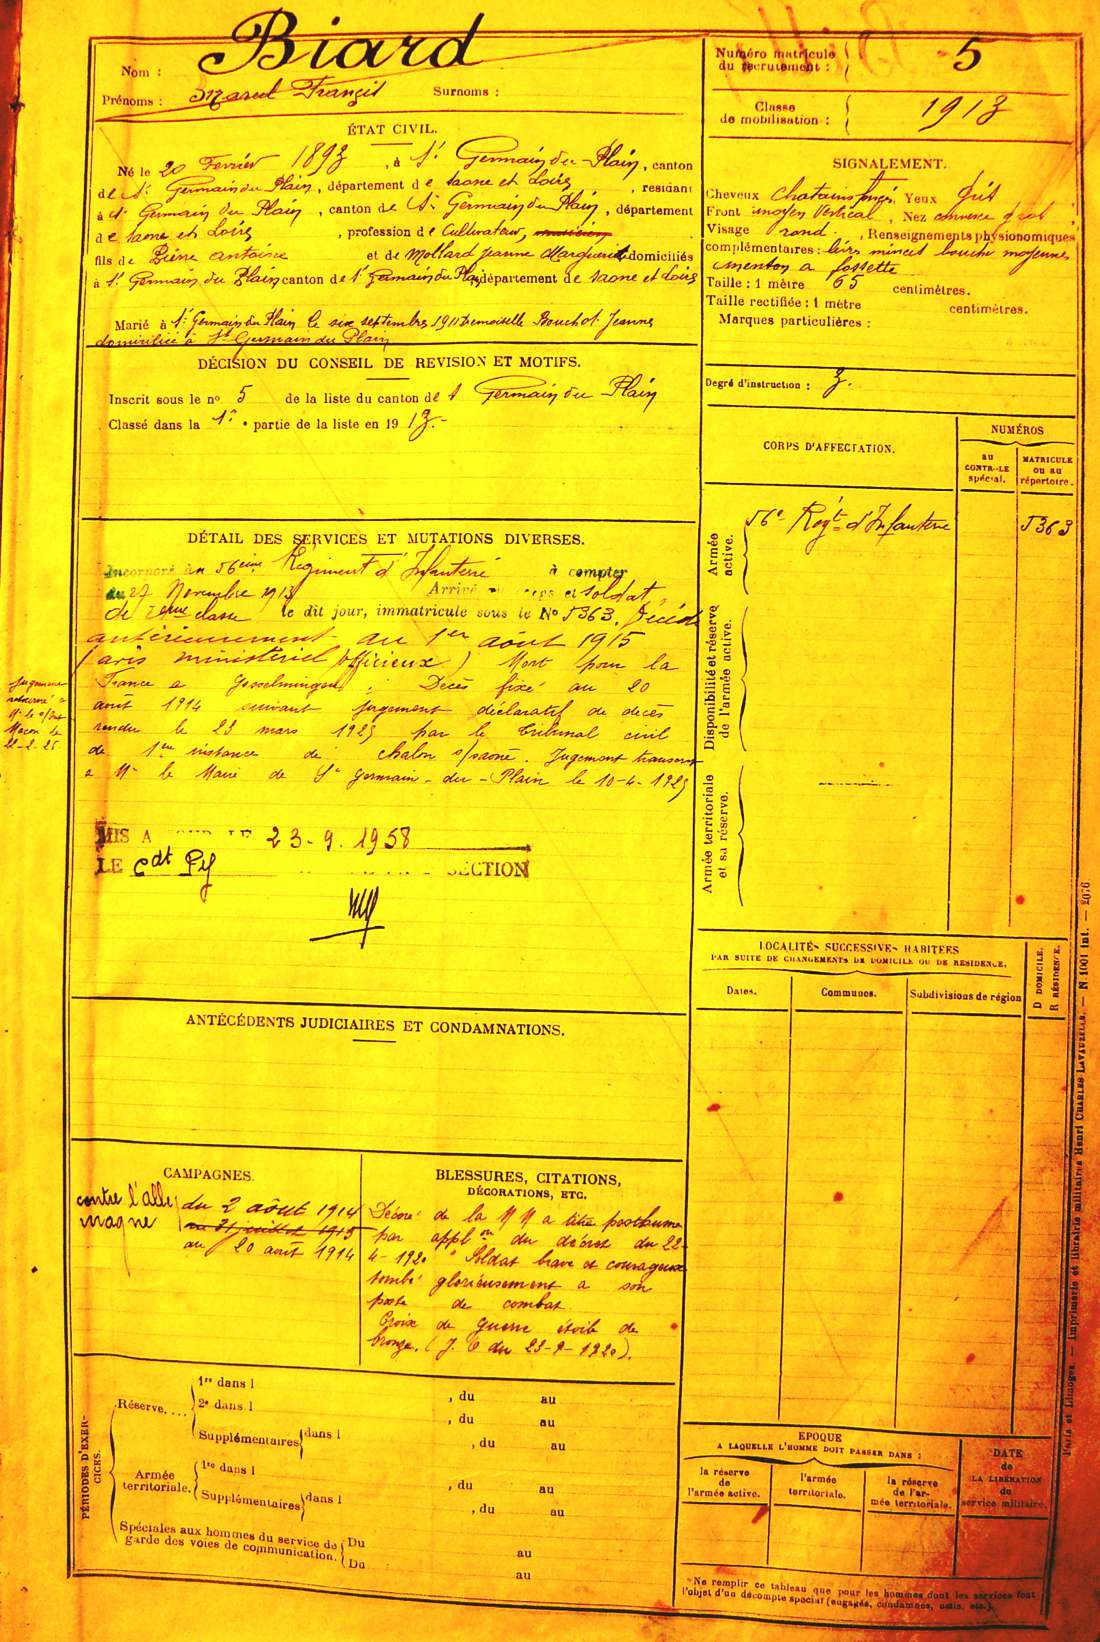 Nom : Biard
Prénoms : Marcel Francis Surnoms :
Numéro matricule
du recrutement : 5
Classe
de mobilisation : 1913
ÉTAT CIVIL.
Né le 20 Fevrier 1893, à St Germain du Plain, canton
de St Germain du Plain, département de Saone et Loire, résidant
à St Germain du Plain, canton de St Germain du Plain, département
de Saone et Loire, profession de Cultivateur,
fils de Pierre Antoine et de Mollard Jeanne Marguerite domiciliés
à St Germain du Plain canton de St Germain du Plain, département de Saone et Loire
Marié à St Germain du Plain le six septembre 191 Demoiselle Bouchot Jeanne
domiciliée à St Germain du Plain
SIGNALEMENT.
Cheveux chatains foncés Yeux gris
Front moyen vertical, Nez
Visage rond. Renseignements physionomiques
complémentaires : lèvres minces bouche moyenne
menton a fossette
Taille : 1 mètre 65 centimètres.
Taille rectifiée : 1 mètre centimètres.
Marques particulières :
Degré d'instruction : 3.
DÉCISION DU CONSEIL DE REVISION ET MOTIFS.
Inscrit sous le no 5 de la liste du canton de St Germain du Plain
Classé dans la 1e. partie de la liste en 1913.-
CORPS D'AFFECTATION.
NUMÉROS
au
CONTROLE
spécial.
MATRICULE
ou au
répertoire.
Armée
active.
56e Regt d'Infanterie 5363
Disponibilité et réserve
de l'armée active.
Armée territoriale
et sa réserve.
DÉTAIL DES SERVICES ET MUTATIONS DIVERSES.
Incorporé au 56eme Régiment d'Infanterie à compter
du 27 Novembre 1913 Arrivé au corps et soldat
de 2eme classe le dit jour, immatriculé sous le No 5363. Décédé
antérieurement au 1er août 1915
(avis ministériel officieux) Mort pour la
France a Gosselmingen : Décès fixé au 20
août 1914 suivant jugement déclaratif de décès
rendu le 23 mars 1925 par le tribunal civil
de 1ere instance de Chalon s/Saone. Jugement transcrit
a Mr le Maire de St Germain-du-Plain le 10-4-1925
Jugement
Macon le
22-2-25
MIS A JOUR LE 23-9-1958
LE Cdt Py SECTION
ANTÉCÉDENTS JUDICIAIRES ET CONDAMNATIONS.
LOCALITÉS SUCCESSIVES HABITÉES
PAR SUITE DE CHANGEMENTS DE DOMICILE OU DE RÉSIDENCE.
Dates.
Communes.
Subdivisions de région
D DOMICILE.
R RÉSIDENCE.
CAMPAGNES.
contre l'Alle
magne
du 2 août 1914
au 31 juillet 1915
au 20 août 1914
BLESSURES, CITATIONS,
DÉCORATIONS, ETC.
Décoré de la MM a titre posthume
par applon du décret du 22-
4-1920 "Soldat brave et courageux
tombé glorieusement a son
poste de combat
Croix de guerre étoile de
bronze. (J. O du 23-9-1920).
PÉRIODES D'EXERCICES.
Réserve....
1re dans l , du au
2e dans l , du au
Supplémentaires dans l , du au
Armée
territoriale.
1re dans l , du au
Supplémentaires dans l , du au
Spéciales aux hommes du service de
garde des voies de communication.
Du au
Du au
EPOQUE
A LAQUELLE L'HOMME DOIT PASSER DANS :
la réserve
de
l'armée active.
l'armée
territoriale.
la réserve
de l'armée territoriale.
DATE
de
LA LIBÉRATION
du
service militaire.
Ne remplir ce tableau que pour les hommes dont les services font
l'objet d'un décompte spécial (engagés, condamnés, omis, etc.).
Paris et Limoges. — Imprimerie et librairie militaires Henri CHARLES-LAVAUZELLE. — N. 1001 int. — 2076